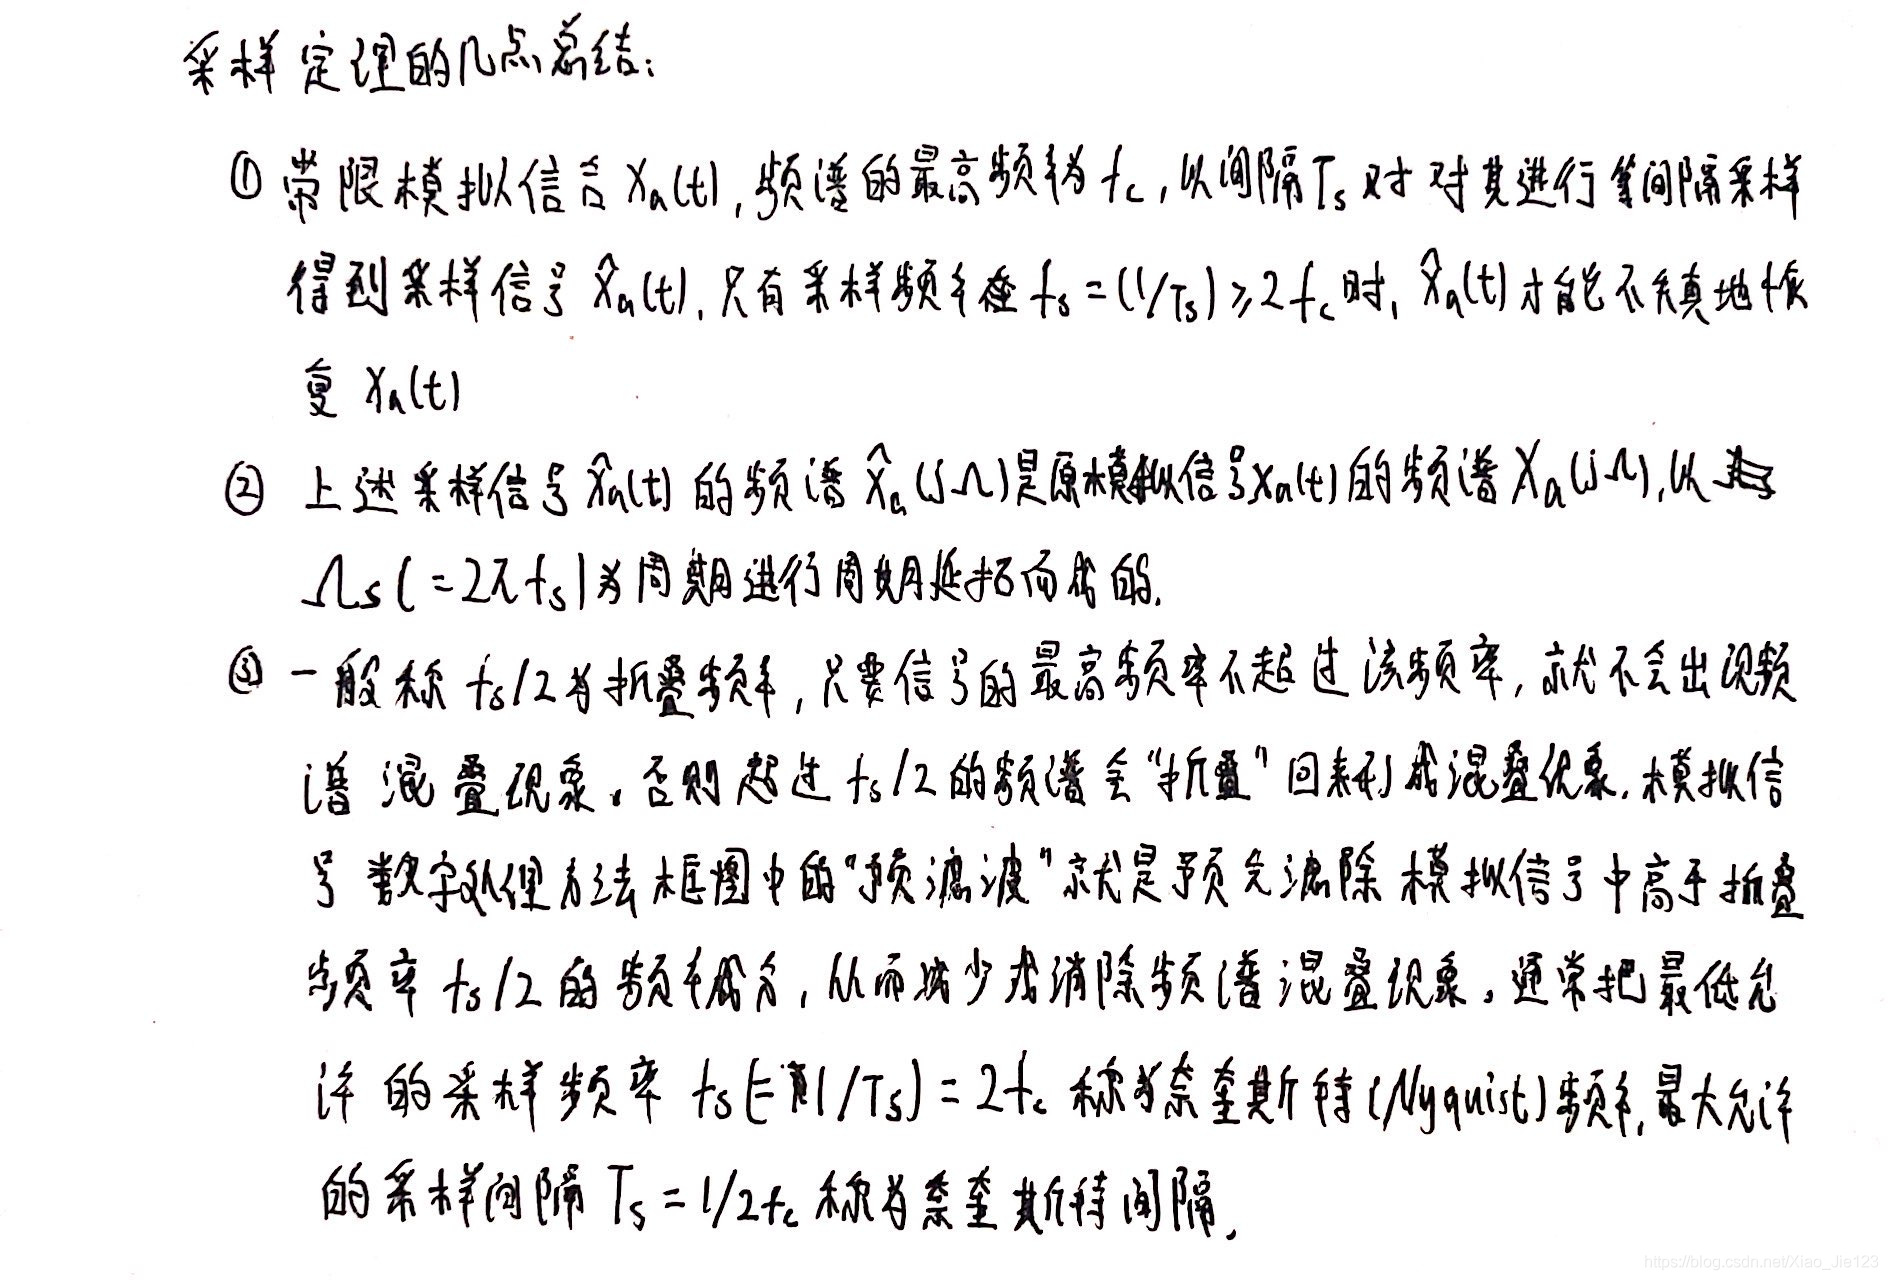 采样定理的几点总结:
① 带限模拟信号 Xa(t), 频谱的最高频率为 fc, 以间隔Ts 对 对其进行等间隔采样
得到采样信号 X̂a(t), 只有采样频率在 fs=(1/Ts)≥2fc时, X̂a(t)才能不失真地恢
复 Xa(t)
② 上述采样信号X̂a(t) 的频谱 X̂a(jΩ)是原模拟信号Xa(t)的频谱 Xa(jΩ), 以
Ωs(=2πfs)为周期进行周期延拓而成的.
③ 一般称 fs/2为折叠频率, 只要信号的最高频率不超过该频率, 就不会出现频
谱混叠现象。否则超过 fs/2的频谱会“折叠”回来形成混叠现象. 模拟信
号数字处理方法框图中的“预滤波”就是预先滤除模拟信号中高于折叠
频率 fs/2 的频率成分, 从而减少或消除频谱混叠现象。通常把最低允
许的采样频率 fs(=1/Ts)=2fc 称为奈奎斯特(Nyquist)频率, 最大允许
的采样间隔 Ts=1/2fc 称为奈奎斯特间隔.
https://blog.csdn.net/Xiao_Jie123